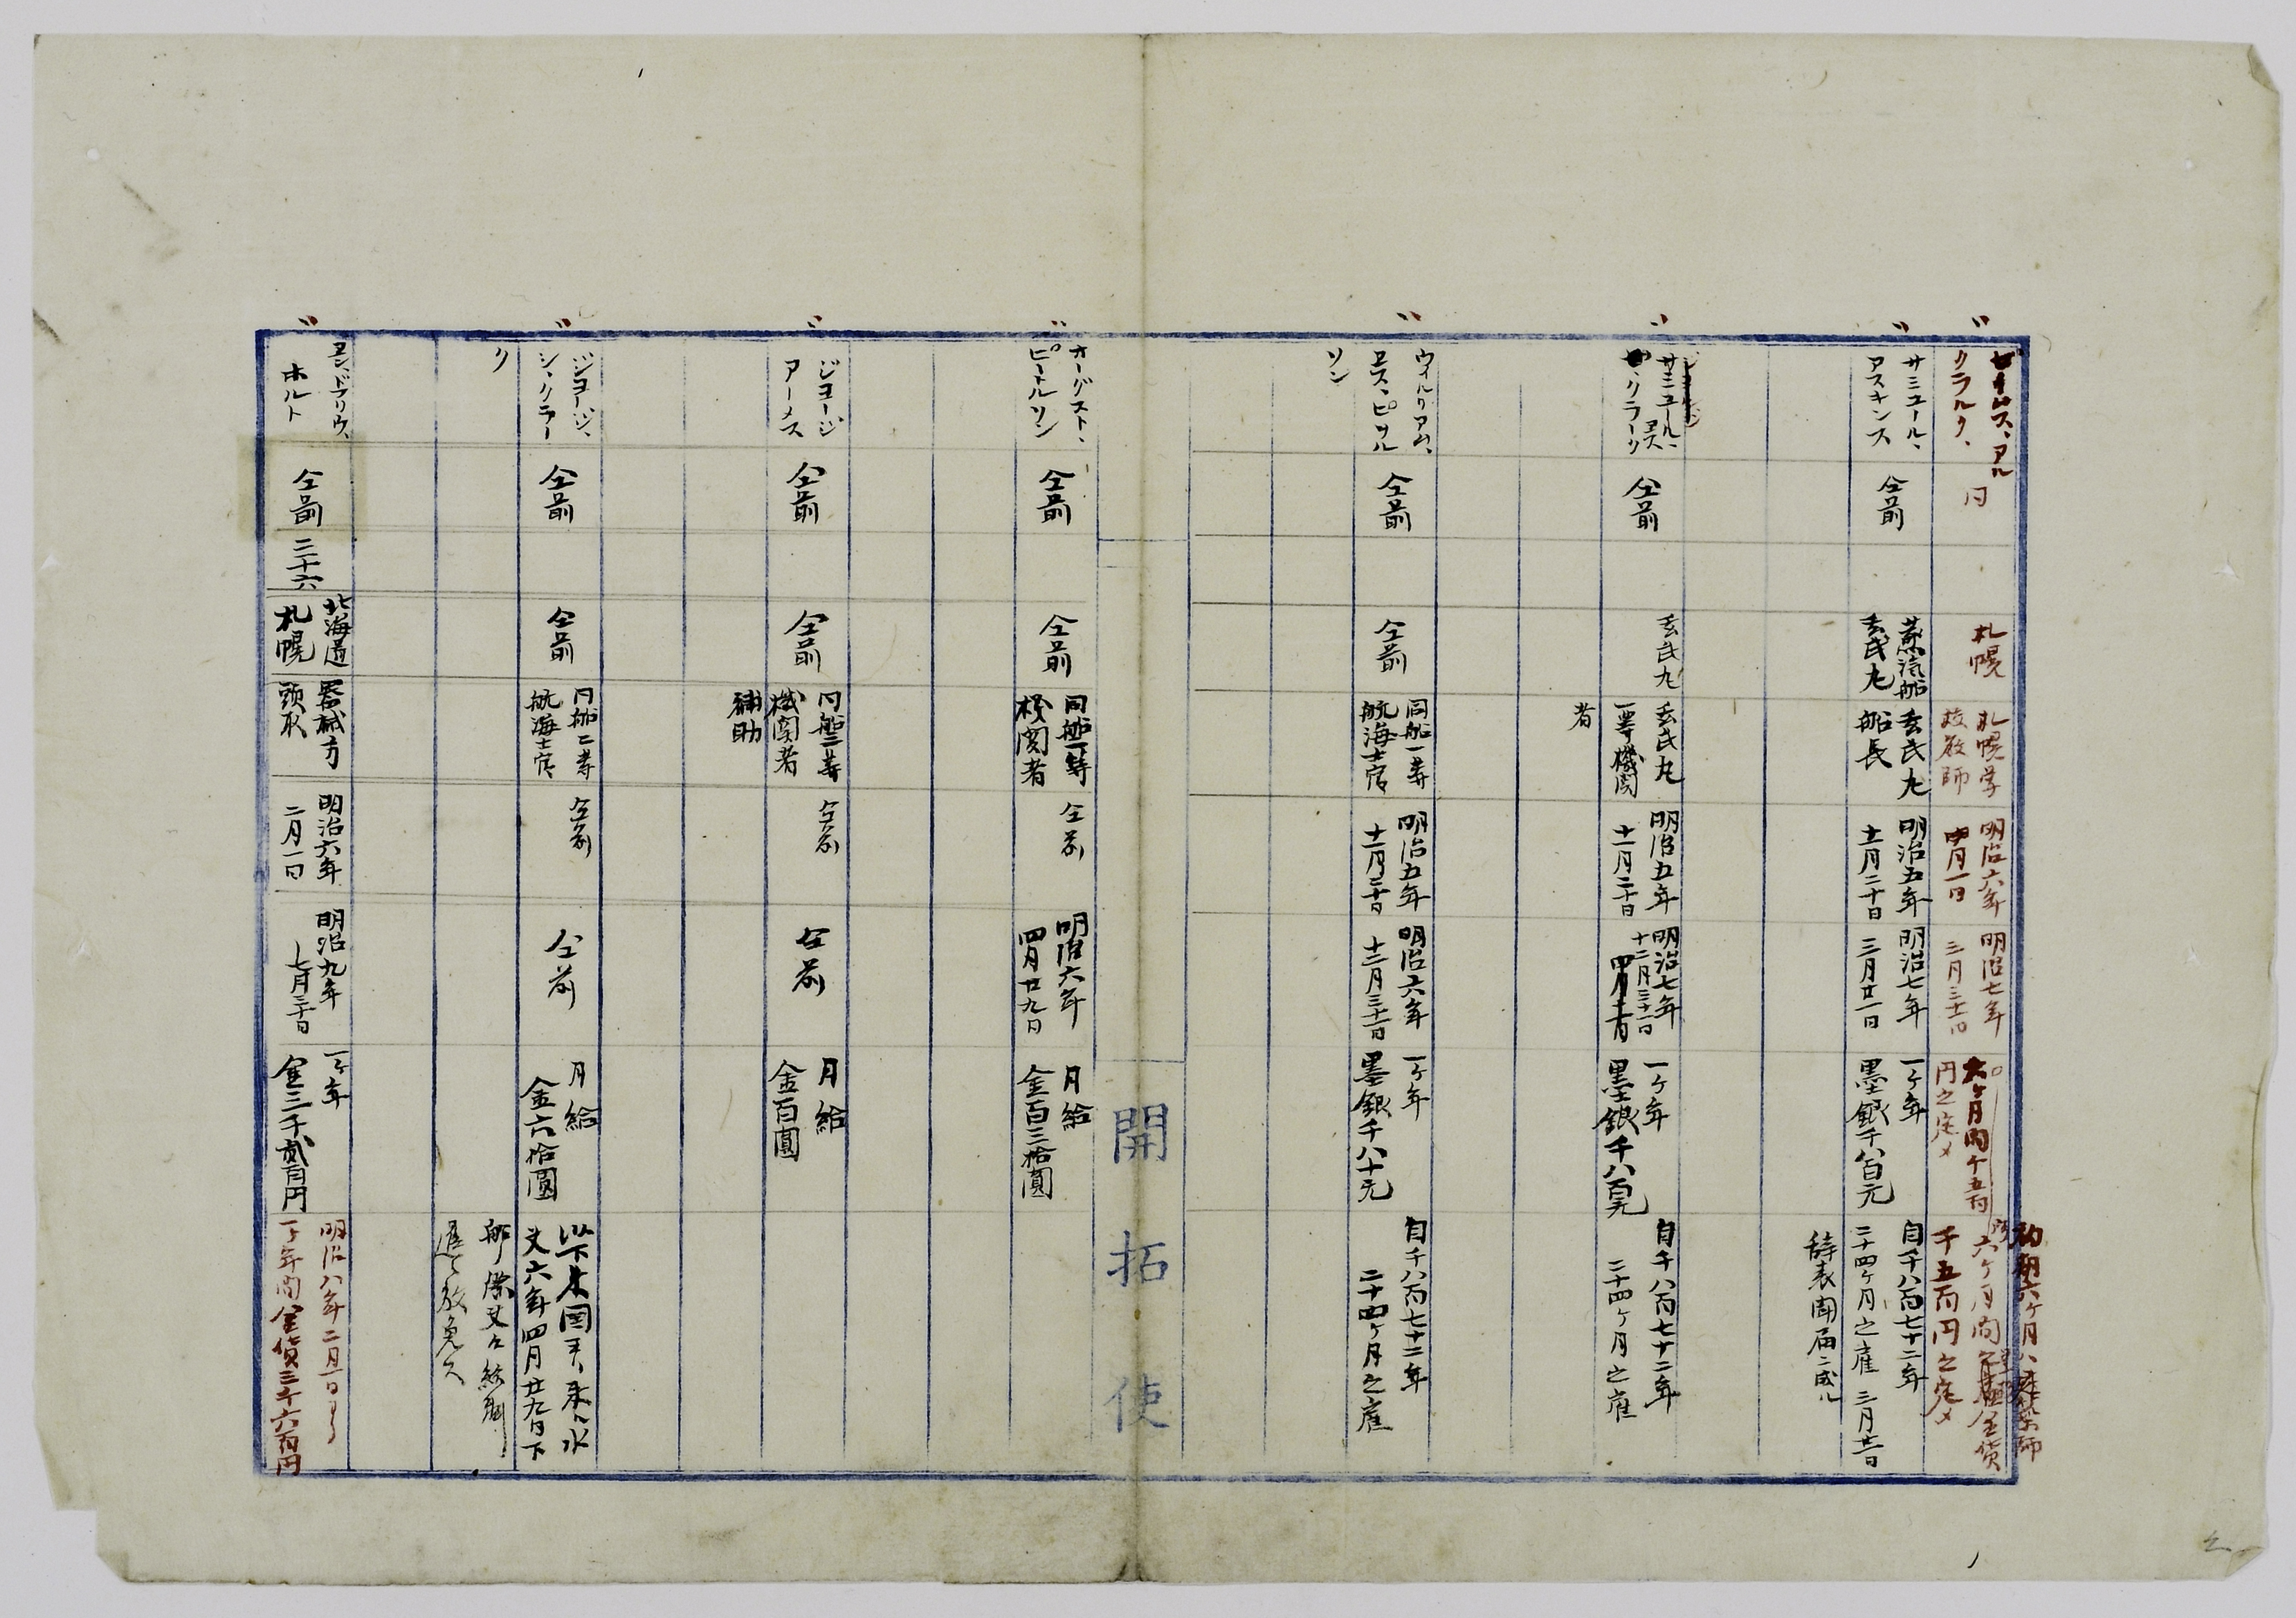 ゼームス、アル
クラルク、
同
札幌
札幌学
校教師
明治六年
四月一日
明治七年
三月三十一日
六ケ月間千五百
円之定メ
初期六ケ月ハ
六ケ月間
金貨
千五百円之定メ
サミユール、
アスキンス
仝前
蒸気船
玄武丸
玄武丸
船長
明治五年
十一月二十日
明治七年
三月廿一日
一ケ年
墨銀千八百元
自千八百七十二年
二十四ケ月之雇 三月廿一日
辞表聞届ニ成ル
サミユール、
クラーク
仝前
玄武丸
玄武丸
一等機関
者
明治五年
十一月二十日
明治七年
十二月三十一日
一ケ年
墨銀千八百元
自千八百七十二年
二十四ケ月之雇
ウイルリアム、
ロス、ピソル
ソン
仝前
仝前
同船一等
航海士官
明治五年
十一月二十日
明治六年
十二月三十一日
一ケ年
墨銀千八十元
自千八百七十二年
二十四ケ月之雇
開拓使
オーグスト、
ピートルソン
仝前
仝前
同船一等
機関者
仝前
明治六年
四月廿九日
月給
金百三拾圓
ジヨージ
アームス
仝前
仝前
同船二等
機関者
補助
仝前
仝前
月給
金百圓
ジヨージ、
シ、クラー
ク
仝前
仝前
同船二等
航海士官
仝前
仝前
月給
金六拾圓
以下米国ヨリ来ル水
夫六年四月廿九日下
船
放免ス
ヱン、ドブリウ、
ホルト
仝前
二十六
北海道
札幌
器械方
頭取
明治六年
二月一日
明治九年
七月三十日
一ケ年
金三千貳百円
明治八年二月一日ヨリ
一ケ年間金貨三千六百円